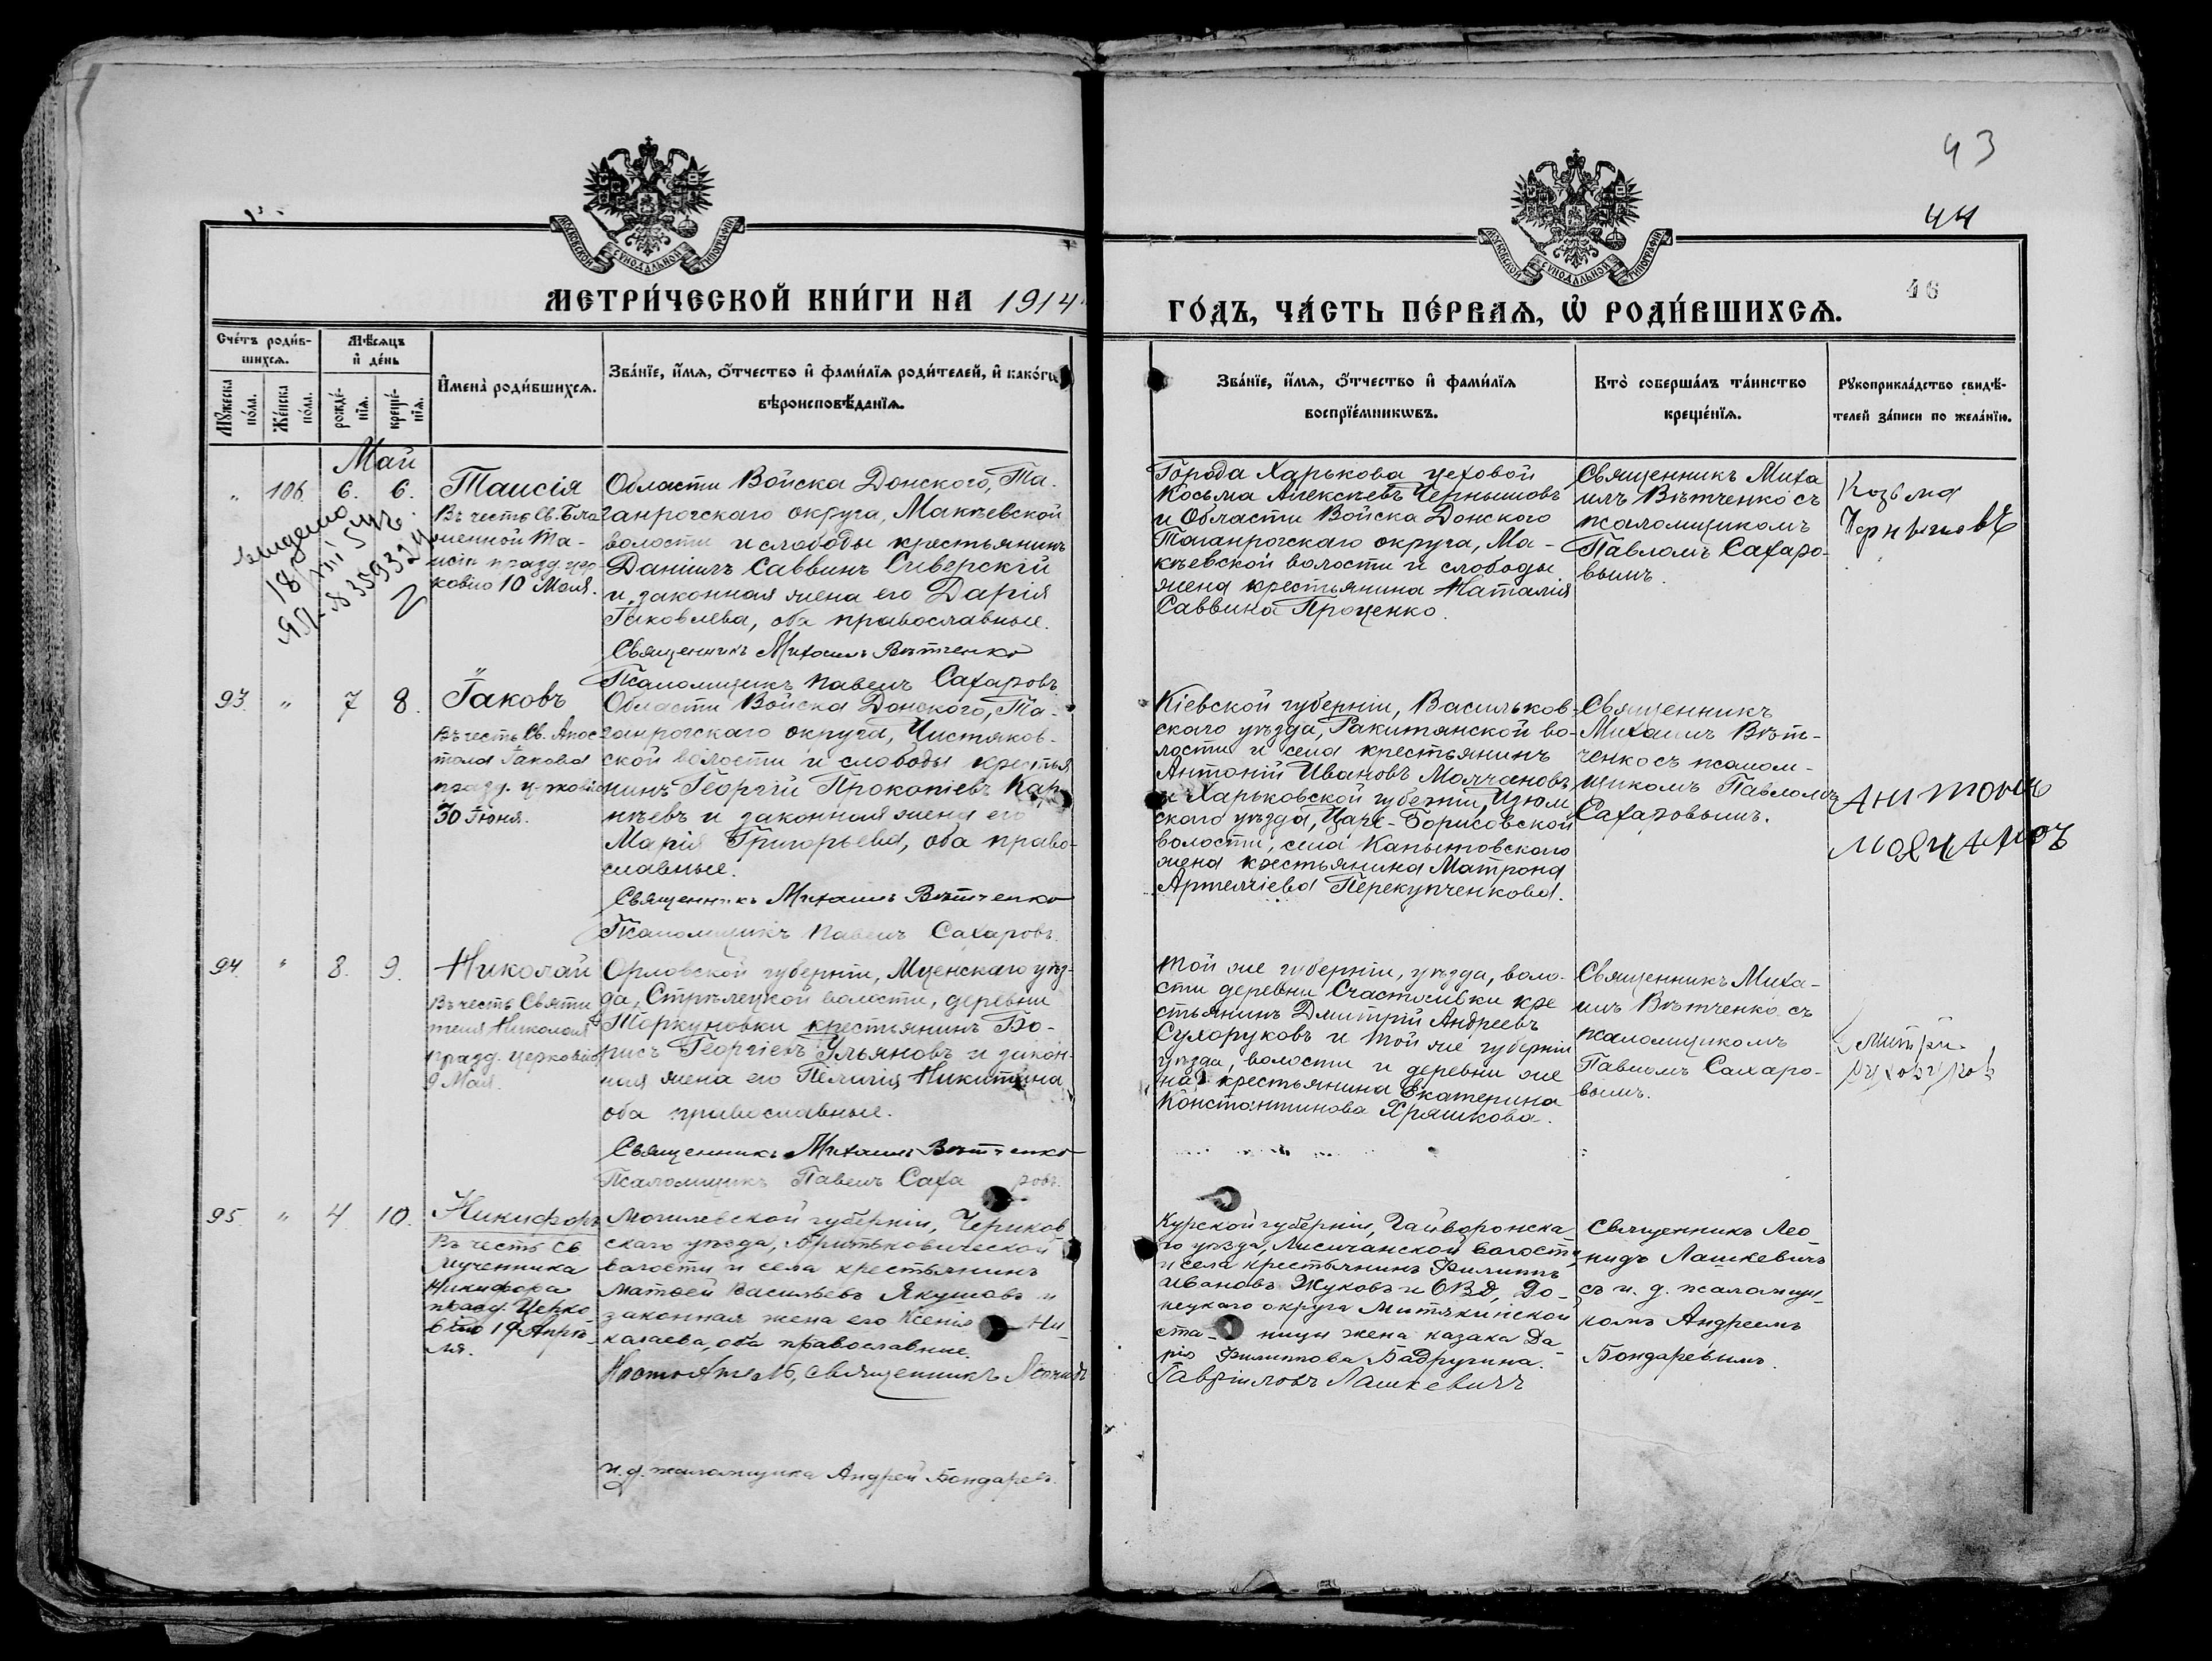 43
44
46
МОСКОВСКОЙ СѴНОДАЛЬНОЙ ТИПОГРАФІИ
МОСКОВСКОЙ СѴНОДАЛЬНОЙ ТИПОГРАФІИ
МЕТРИ́ЧЕСКОЙ КНИ́ГИ НА 1914
ГО́ДЪ, ЧА́СТЬ ПЕ́РВАѦ, Ѿ РОДИ́ВШИХСѦ.
Сче́тъ роди́в-
шихсѧ.
Мѣ́сѧцъ
и де́нь
Мꙋжеска
пола.
Же́нска
пола.
рожде́-
нїѧ.
креще́-
нїѧ.
И҆мена̀ роди́вшихсѧ.
Зва́нїе, и҆́мѧ, ѻ҆́тчество и҆ фами́лїѧ роди́телей, и҆ како́гѡ
вѣроисповѣ́данїѧ.
Зва́нїе, и҆́мѧ, ѻ҆́тчество и҆ фами́лїѧ
воспрїе́мникѡвъ.
Кто̀ соверша́лъ та́инство
креще́нїѧ.
Рꙋкоприкла́дство свидѣ́-
телей за́писи по жела́нїю.
Май
" 106 6. 6.
18/VIII 5
Таисія
Въ честь Св. Бла
женной Та-
исіи празд. цер
ковію 10 Мая.
Области Войска Донского, Та-
ганрогскаго округа, Макѣевской
волости и слободы крестьянинъ
Даніилъ Саввинъ Сиверскій
и законная жена его Дарія
Іаковлева, оба православные.
Священникъ Михаилъ Вѣтченко
Псаломщикъ Павелъ Сахаровъ.
Города Харькова цеховой
Косьма Алексѣевъ Чернышовъ
и Области Войска Донского
Таганрогскаго округа, Ма-
кѣевской волости и слободы
жена крестьянина Наталія
Саввина Проценко.
Священникъ Миха
илъ Вѣтченко съ
псаломщикомъ
Павломъ Сахаро-
вымъ.
Козьма
Чернышовъ
93. " 7 8.
Іаковъ
Въ честь Св. Апос
тола Іакова
празд. церковію
30 Іюня.
Области Войска Донского, Та-
ганрогскаго округа, Чистяков-
ской волости и слободы крестья
нинъ Георгій Прокопіевъ Кар
нѣевъ и законная жена его
Марія Григорьева, оба право-
славные.
Священникъ Михаилъ Вѣтченко
Псаломщикъ Павелъ Сахаровъ.
Кіевской губерніи, Васильков-
скаго уѣзда, Ракитянской во-
лости и села крестьянинъ
Антоній Ивановъ Молчановъ
и Харьковской губерніи, Изюм
скаго уѣзда, Царе-Борисовской
волости, села Капытовского
жена крестьянина Матрона
Артеміева Перекупченкова.
Священникъ
Михаилъ Вѣт-
ченко съ псалом-
щикомъ Павломъ
Сахаровымъ.
Антонъ
94. " 8. 9.
Николай
Въ честь Святи
теля Николая
празд. церковію
9 Мая.
Орловской губерніи, Мценскаго уѣз-
да, Стрѣлецкой волости, деревни
Торкуновки крестьянинъ Бо-
рисъ Георгіевъ Ульяновъ и закон-
ная жена его Пелагія Никитина
оба православные.
Священникъ Михаилъ Вѣтченко
Псаломщикъ Павелъ Сахаровъ.
Той же губерніи, уѣзда, воло-
сти деревни Счастливки кре
стьянинъ Дмитрій Андреевъ
Сухоруковъ и той же губерніи
уѣзда, волости и деревни же
на крестьянина Екатерина
Константинова Хряшкова.
Священникъ Миха-
илъ Вѣтченко съ
псаломщикомъ
Павломъ Сахаро-
вымъ.
Дмитрій
Сухоруковъ
95. " 4 10.
Никифоръ
Въ честь Св
Мученника
Никифора
празд. Церко
вію 19 Апрѣ-
ля.
Могилевской губерніи, Чериков
скаго уѣзда,
волости и села крестьянинъ
Матѳей Васильевъ Якушовъ и
законная жена его Ксенія Ни-
калаева, оба православные.
Настоятель, Священникъ Леонидъ
Гавріиловъ Лашкевичъ
и. д. псаломщика Андрей Бондаревъ.
Курской губерніи, Гайворонска-
го уѣзда, Лисичанской волости
и села крестьянинъ Филиппъ
Ивановъ Жуковъ и ОВД, До-
нецкаго округа Митякинской
станицы жена казака Да-
рія Филиппова Бадругина.
Священникъ Лео
нидъ Лашкевичъ
съ и. д. псаломщи-
комъ Андреемъ
Бондаревымъ.